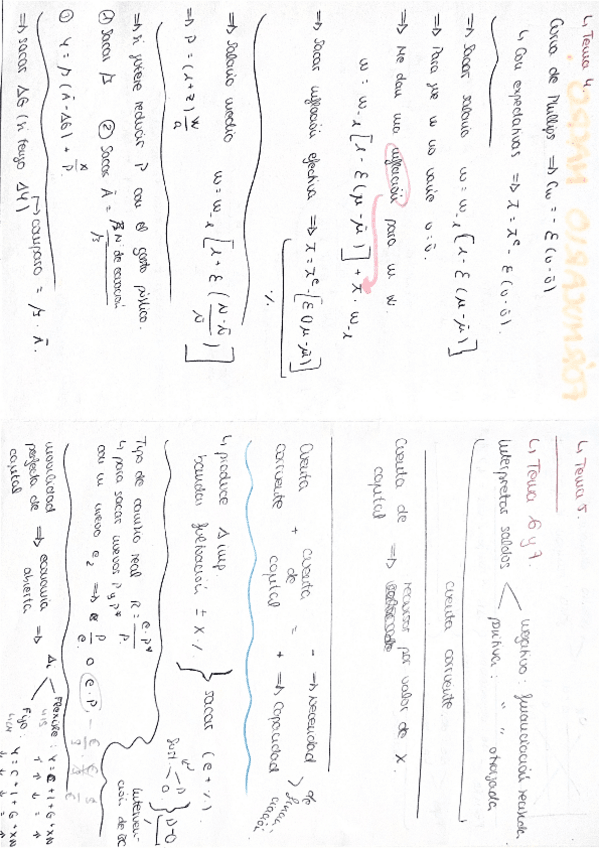 FORMULARIO MACRO.
↳ Tema 4.
Curva de Phillips ⇒ Gw = - ε (u - ū)
↳ Con expectativas ⇒ π = πᵉ - ε (u - ū)
⇒ Sacar salario w = w₋₁ [1 - ε (μ - μ̄)]
⇒ Para que w no varíe u = ū.
⇒ Me dan una inflación para un w.
w = w₋₁ [1 - ε (μ - μ̄)] + π · w₋₁
⇒ Sacar inflación efectiva ⇒ π = πᵉ - [ε (μ - μ̄)]
%
⇒ Salario medio w = w₋₁ [1 + ε (N - N̄ / N̄)]
⇒ P = (1 + z) w/a
⇒ Si quiere reducir P con el gasto público.
① Sacar β ② Sacar Ā =
① Y = β (Ā - ΔG) +
⇒ sacar ΔG (si tengo ΔY)
comparo = β · Ā.
↳ Tema 5.
↳ Tema 6 y 7.
Interpretar saldos
negativo: financiación recibida
positiva: " " otorgada.
cuenta corriente
Cuenta de capital ⇒ recursos por valor de X.
Cuenta corriente + Cuenta de capital =
- ⇒ necesidad
+ ⇒ capacidad
de financiación
↳ produce Δ imp.
bandas fluctuación ± x %
sacar (e + %)
Tipo de cambio real R = e·P* / P
↳ para sacar nuevos P y P*
con un nuevo e₂ ⇒
intervención de BC
movilidad perfecta de capital ⇒ economía abierta ⇒ Δi
Flexible: Y = C + I + G + XN
Fijo: Y = C + I + G + XN